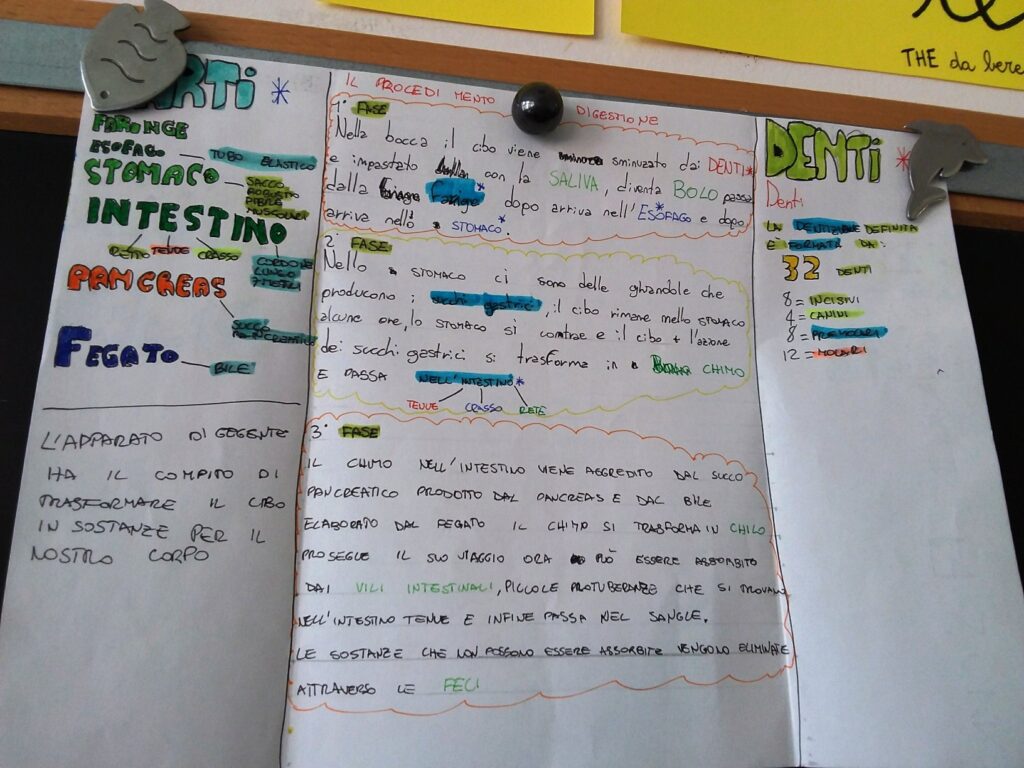 THE da bere
ARTI *
FARINGE
ESOFAGO
TUBO ELASTICO
STOMACO
SACCO
ROBUSTO
MUSCOLARE
INTESTINO
RETTO TENUE CRASSO
CORDONE
LUNGO
7 METRI
PANCREAS
SUCCO
PANCREATICO
FEGATO
BILE
L'APPARATO DIGEGENTE
HA IL COMPITO DI
TRASFORMARE IL CIBO
IN SOSTANZE PER IL
NOSTRO CORPO
IL PROCEDIMENTO DIGESTIONE
1° FASE
Nella bocca il cibo viene sminuzato dai DENTI*
e impastato con la SALIVA, diventa BOLO passa
dalla Faringe* dopo arriva nell'ESOFAGO e dopo
arriva nello STOMACO.*
2° FASE
Nello STOMACO ci sono delle ghiandole che
producono i succhi gastrici, il cibo rimane nello STOMACO
alcune ore, lo STOMACO si contrae e il cibo + l'azione
dei succhi gastrici si trasforma in CHIMO
E PASSA NELL'INTESTINO*
TENUE CRASSO RETE
3° FASE
IL CHIMO NELL'INTESTINO VIENE AGGREDITO DAL SUCCO
PANCREATICO PRODOTTO DAL PANCREAS E DAL BILE
ELABORATO DAL FEGATO IL CHIMO SI TRASFORMA IN CHILO
PROSEGUE IL SUO VIAGGIO ORA PUÒ ESSERE ASSORBITO
DAI VILI INTESTINALI, PICCOLE PROTUBERANZE CHE SI TROVANO
NELL'INTESTINO TENUE E INFINE PASSA NEL SANGUE.
LE SOSTANZE CHE NON POSSONO ESSERE ASSORBITE VENGONO ELIMINATE
ATTRAVERSO LE FECI
DENTI *
Denti
LA DENTIZIONE DEFINITA
E' FORMATA DA:
32 DENTI
8 = INCISIVI
4 = CANINI
8 = PREMOLARI
12 = MOLARI